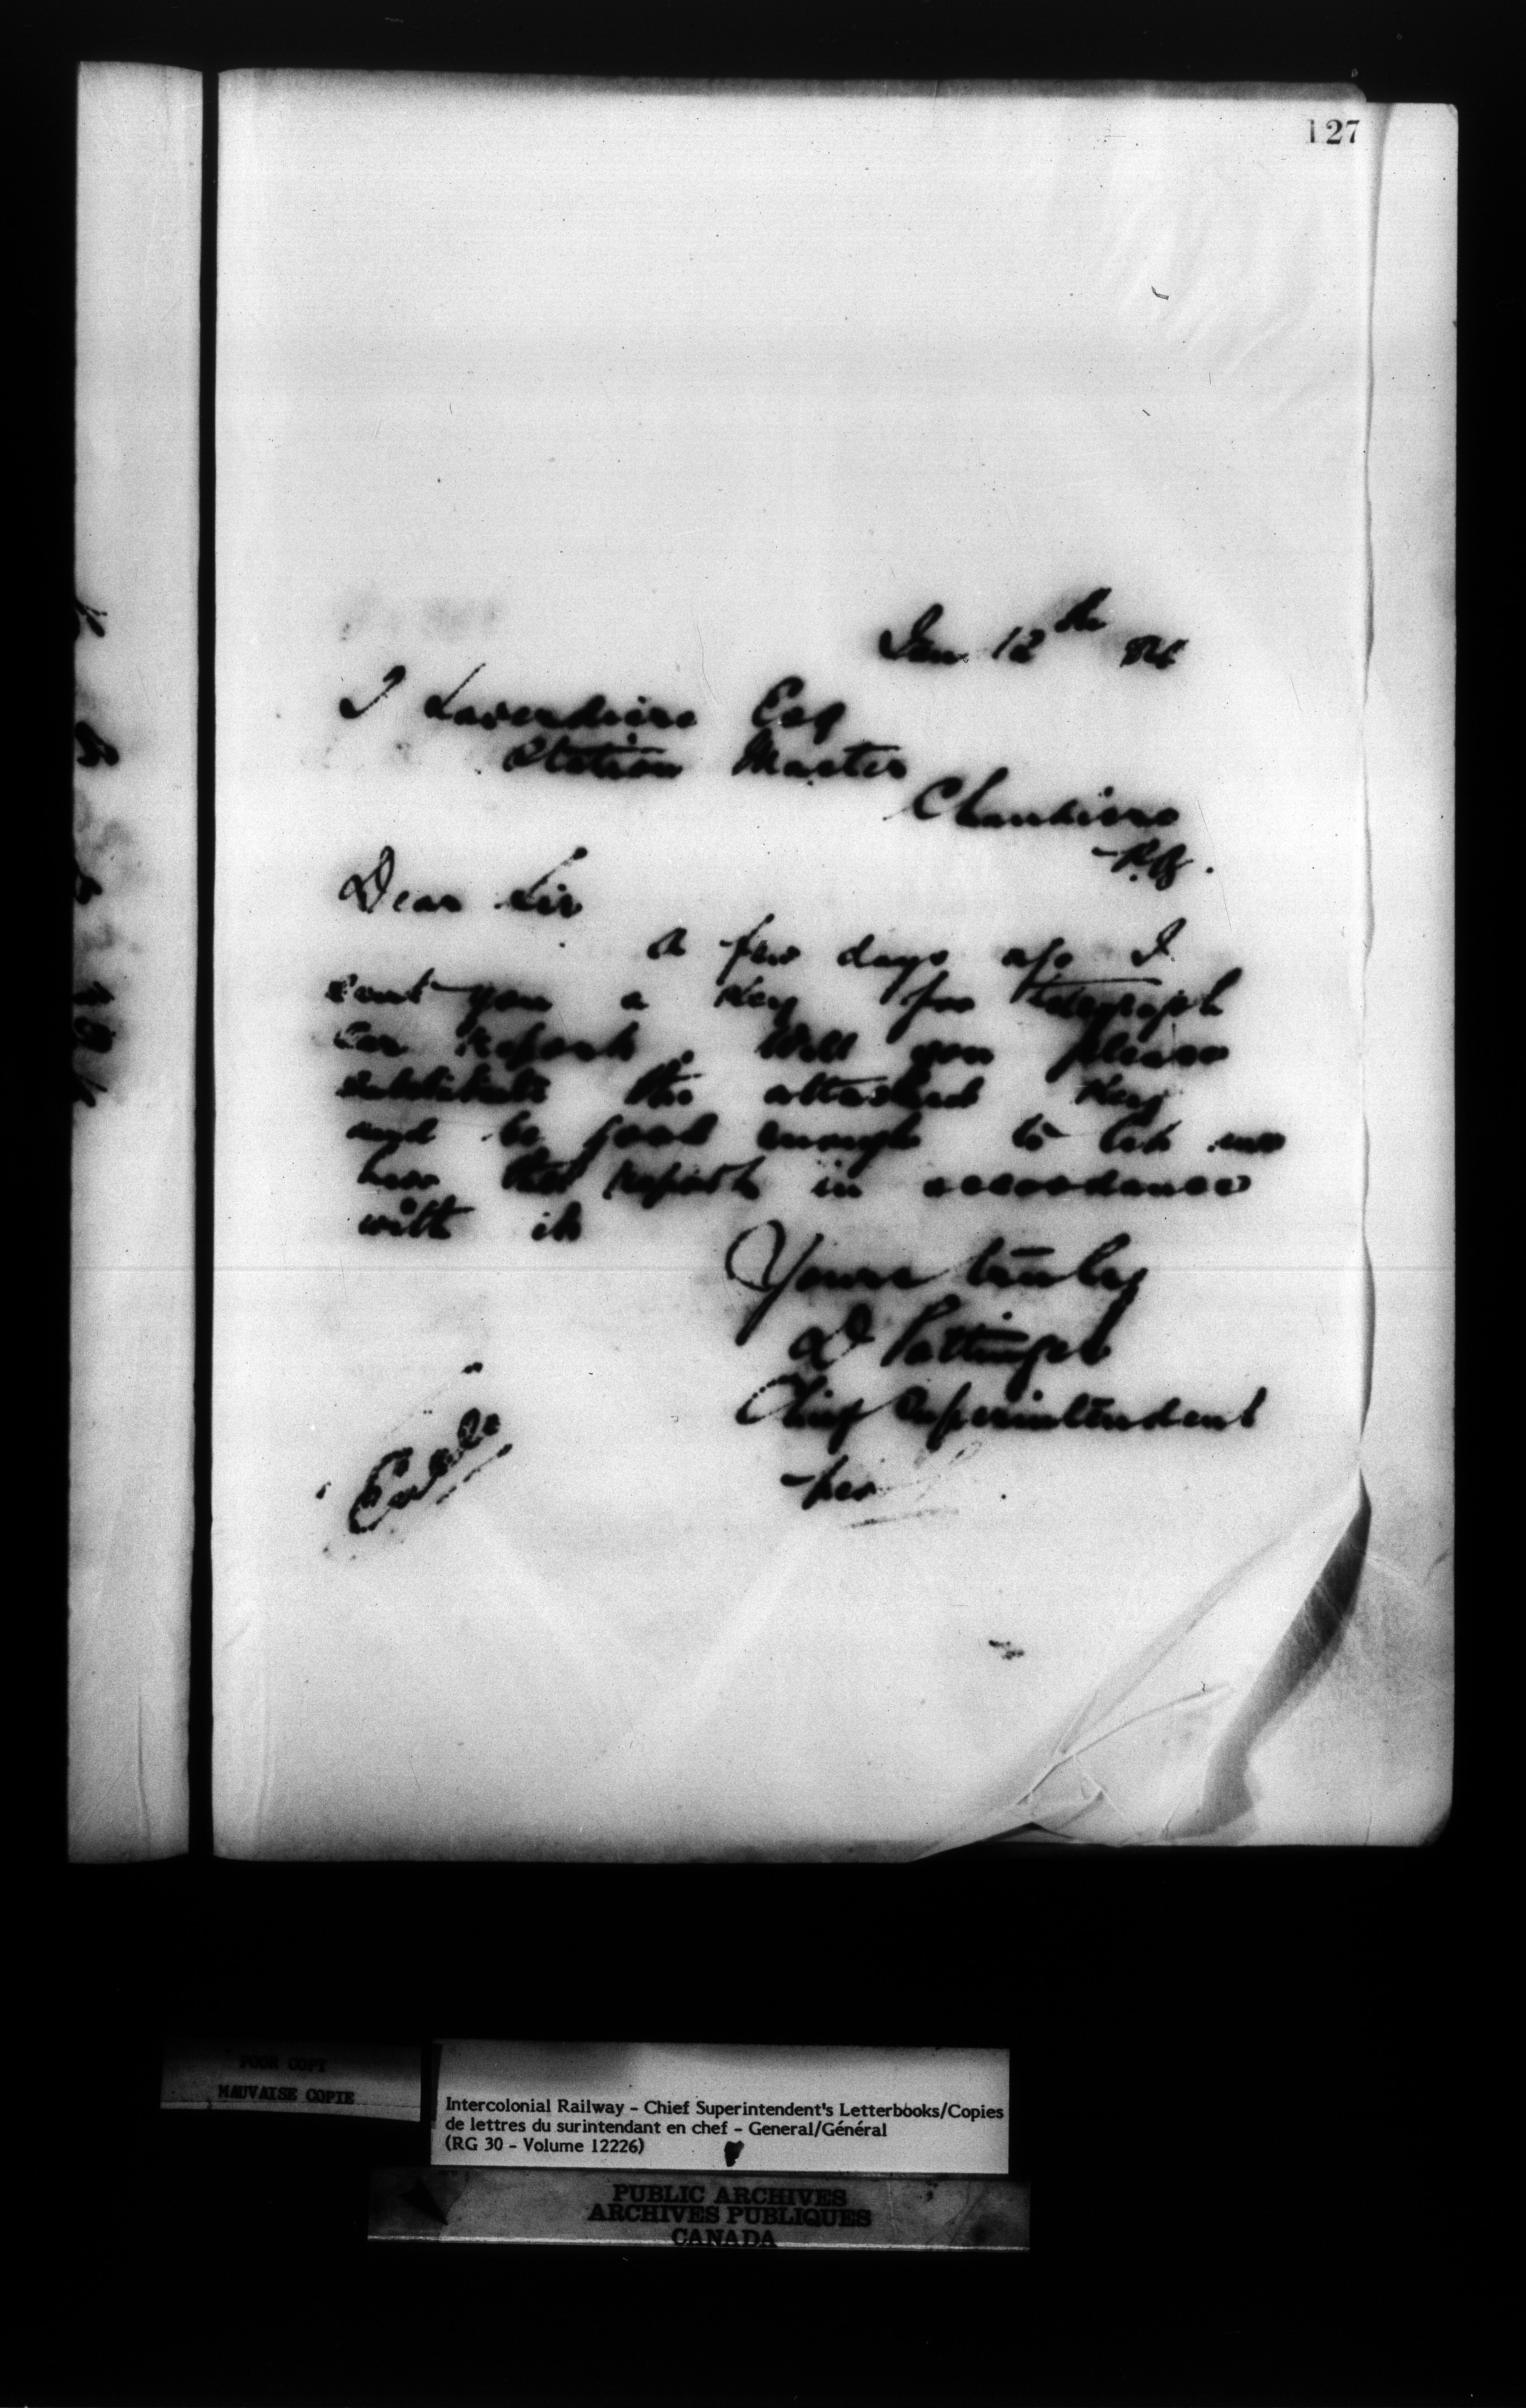 127
Jan 12th 84
J Laverdiere Esq
Station Master
Chaudiere
P.Q.
Dear Sir
A few days ago I
sent you a Key for telegraph
Car Report. Will you please
substitute the attached Key
and be good enough to let me
have the Reports in accordance
with it
Yours truly
D Pottinger
Chief Superintendent
per
POOR COPY
MAUVAISE COPIE
Intercolonial Railway - Chief Superintendent's Letterbooks/Copies
de lettres du surintendant en chef - General/Général
(RG 30 - Volume 12226)
PUBLIC ARCHIVES
ARCHIVES PUBLIQUES
CANADA